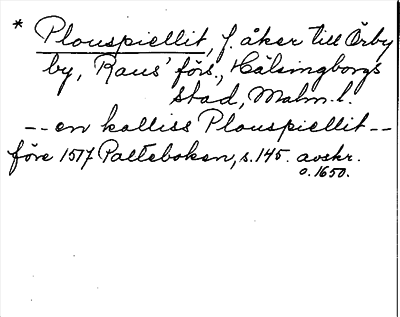 * Plouspiellit, f. åker till Örby
by, Raus' förs., Hälsingborgs
stad, Malm. l.
-- en kalliss Plouspiellit --
före 1517 Palteboken, s. 145. avskr.
o. 1650.